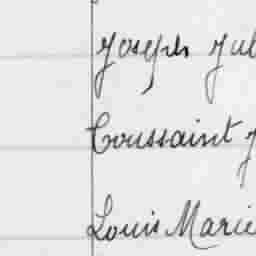 Joseph Jul
Toussaint J
Louis Marie